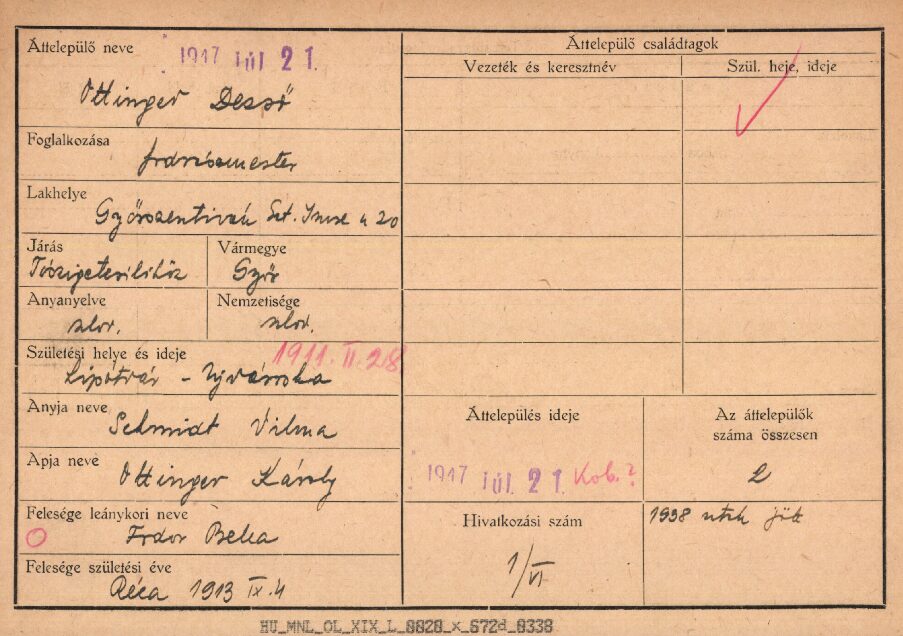 Áttelepülő neve
1947 JÚL 21.
Ottinger Dezső
Foglalkozása
Lakhelye
Győrszentiván Szt. Imre u 20
Járás
Vármegye
Győr
Anyanyelve
szlov.
Nemzetisége
szlov.
Születési helye és ideje
1911. II. 28.
Lipótvár - Újvároska
Anyja neve
Schmidt Vilma
Apja neve
Ottinger Károly
Felesége leánykori neve
Fodor
Felesége születési éve
Réca 1913 IX. 4
Áttelepülő családtagok
Vezeték és keresztnév
Szül. heje, ideje
Áttelepülés ideje
1947 JÚL. 21. Kob.?
Az áttelepülők
száma összesen
2
Hivatkozási szám
1/VI
1938 után jött
HU_MNL_OL_XIX_L_8828_x_672d_8338